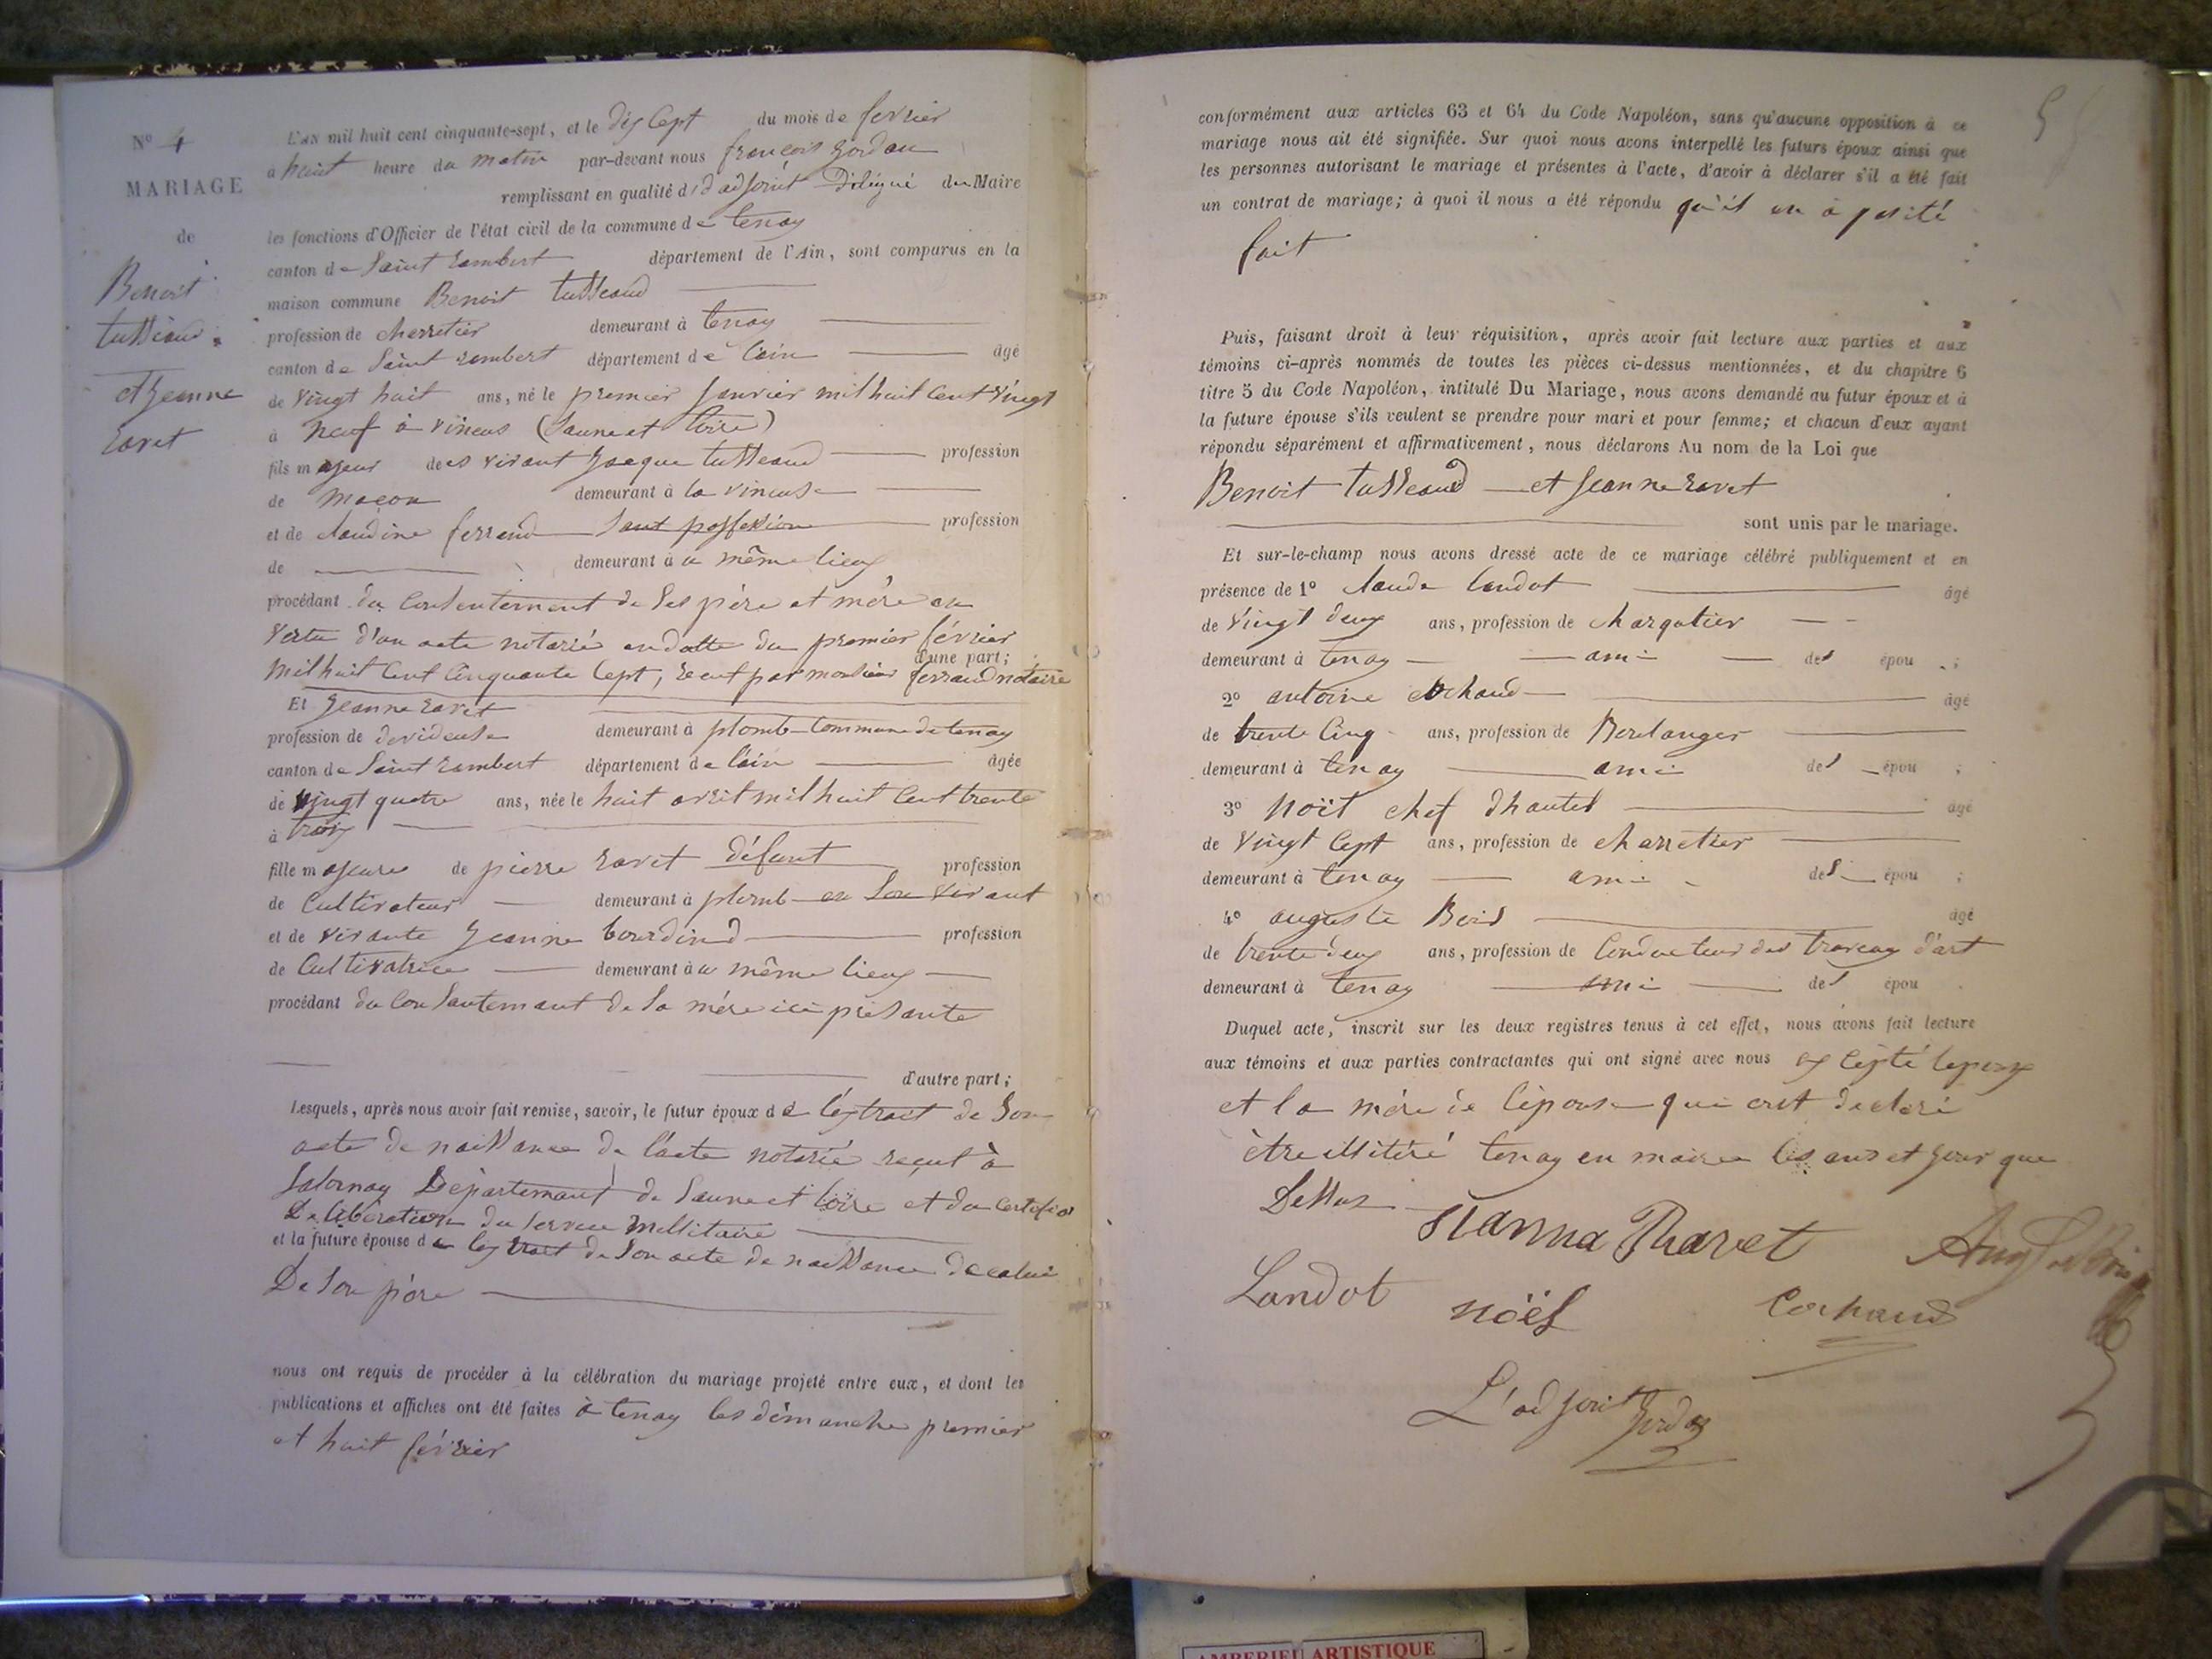 N° 4
MARIAGE
de
Benoit
tusseaud
et Jeanne
ravet
L'an mil huit cent cinquante-sept, et le dix sept du mois de fevrier
à huit heure du matin par-devant nous françois Jordan
remplissant en qualité d'adjoint Délégué du Maire
les fonctions d'Officier de l'état civil de la commune de tenay
canton de Saint rambert département de l'Ain, sont comparus en la
maison commune Benoit tusseaud
profession de cherretier demeurant à tenay
canton de Saint rambert département de l'ain âgé
de vingt huit ans, né le premier janvier mil huit cent vingt
à neuf à vineus (Saune et loire)
fils majeur des vivant Jaeque tusseaud profession
de maçon demeurant à la vineuse
et de claudine ferrand Sant possession profession
de demeurant à u même lieux
procédant du consentement de Ses père et mère en
vertu d'un acte notarié en datte du premier février
d'une part;
mil huit cent cinquante sept, recut par monsieur ferraud notaire
Et Jeanne ravet
profession de devideuse demeurant à plomb commune de tenay
canton de Saint rambert département de l'ain âgée
de vingt quatre ans, née le huit avril mil huit cent trente
à trois
fille majeure de pierre ravet défunt profession
de cultivateur demeurant à plomb en Son vivant
et de vivante Jeanne bourdind profession
de cultivatrice demeurant à u même lieux
procédant du consantemant de Sa mére ici présante
d'autre part;
Lesquels, après nous avoir fait remise, savoir, le futur époux de l'extrait de Son
acte de naissance de l'acte notarié reçut à
Salornay Département de Saune et loire et du certefica
De liberation du service millitaire
et la future épouse de l'extrait de Son acte de naissance de celui
De Son père
nous ont requis de procéder à la célébration du mariage projeté entre eux, et dont les
publications et affiches ont été faites à tenay les dimanche premier
et huit février
5
conformément aux articles 63 et 64 du Code Napoléon, sans qu'aucune opposition à ce
mariage nous ait été signifiée. Sur quoi nous avons interpellé les futurs époux ainsi que
les personnes autorisant le mariage et présentes à l'acte, d'avoir à déclarer s'il a été fait
un contrat de mariage; à quoi il nous a été répondu qu'il en à
fait
Puis, faisant droit à leur réquisition, après avoir fait lecture aux parties et aux
témoins ci-après nommés de toutes les pièces ci-dessus mentionnées, et du chapitre 6
titre 5 du Code Napoléon, intitulé Du Mariage, nous avons demandé au futur époux et à
la future épouse s'ils veulent se prendre pour mari et pour femme; et chacun d'eux ayant
répondu séparément et affirmativement, nous déclarons Au nom de la Loi que
Benoit tusseaud et Jeanne ravet
sont unis par le mariage.
Et sur-le-champ nous avons dressé acte de ce mariage célébré publiquement et en
présence de 1° claude landot âgé
de vingt deux ans, profession de charqutier
demeurant à tenay ami des épou ;
2° antoine cochaud âgé
de trente cinq ans, profession de Boulanger
demeurant à tenay ami des épou ;
3° noit chef d'hautel âgé
de vingt cept ans, profession de charretier
demeurant à tenay ami des épou ;
4° auguste Bois âgé
de trente deux ans, profession de conducteur des travaux d'art
demeurant à tenay ami des épou
Duquel acte, inscrit sur les deux registres tenus à cet effet, nous avons fait lecture
aux témoins et aux parties contractantes qui ont signé avec nous excepté lepoux
et la mére de l'épouse qui ont declaré
être illitéré tenay en mairee les ans et jour que
Dessus
Jianna Ravet
Landot
noël
Cochaud
L'adjoint Jordan
AMBERIEU ARTISTIQUE